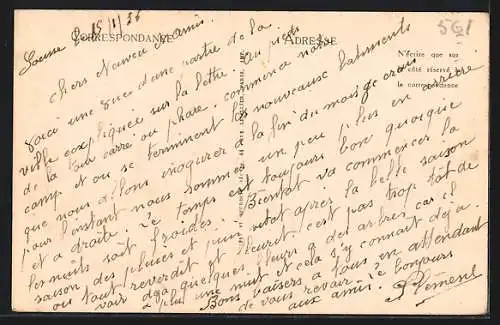 Sousse le 15/1/36
CORRESPONDANCE
ADRESSE
561
N'écrire que sur
le côté réservé à
la correspondance
Chers Neveu et amis.
Voici une vue d'une partie de la
ville expliquée sur la lettre. Au pieds
de la tour carré ou phare. commence notre
camp et ou se terminent les nouveaux batiments
que nous allons inogurer a la fin du mois je crois
pour l'instant nous sommes un peu plus en arrière
et a droite. Le temps est toujours bon quoique
les nuits soit froides. Bientot va commencer la
saison des pluies et puis sitot apres la belle saison
ou tout reverdit et fleurit c'est pas trop tôt de
voir deja quelques fleurs d'arbres car il
a plu une nuit et cela s'y connait déja.
Bons baisers a tous en attendant
de vous revoir. Le bonjours
aux amis.
Clément